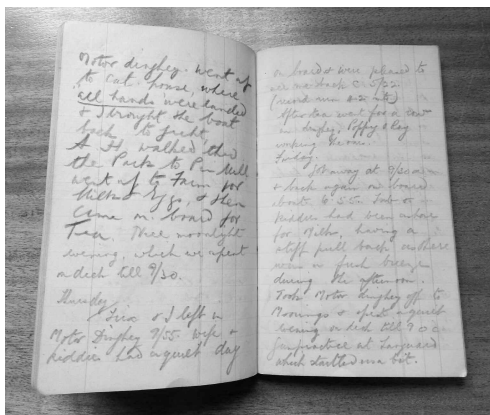 Motor dinghey. Went up
to Cat house, where
all hands were landed
& I brought the boat
back to yacht.
A. H. walked thro
the Park to Pin Mill
went up to Farm for
Milk & Eggs, & then
came on board for
Tea. Nice moonlight
evening, which we spent
on deck till 9/30.
Thursday
& I left in
Motor Dinghey 9/55. Wife &
kiddies had a quiet day
on board & were pleased to
see me back @ 5/22
(record run over).
After tea went for a row
in dinghey, Poppy & Reg
working the oars.
Friday.
away at 9/30 a.m
& back again on board
boat. 6.55. Tub &
kiddies had been ashore
for Milk, having a
stiff pull back as there
was a fresh breeze
during the afternoon.
Took Motor dinghey off to
Moorings & spent a quiet
evening on deck till 9.00.
Gunpractice at
which startled us a bit.